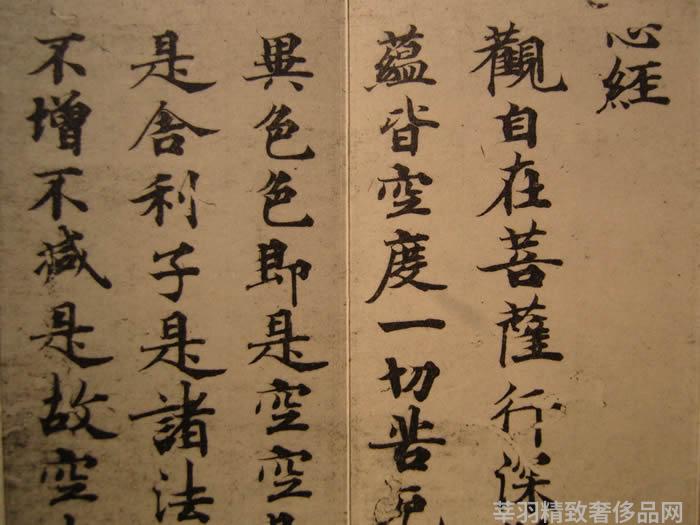 心經
觀自在菩薩行深
蘊皆空度一切苦
異色色即是空空是
是舍利子是諸法
不增不減是故空
莘羽精致奢侈品网